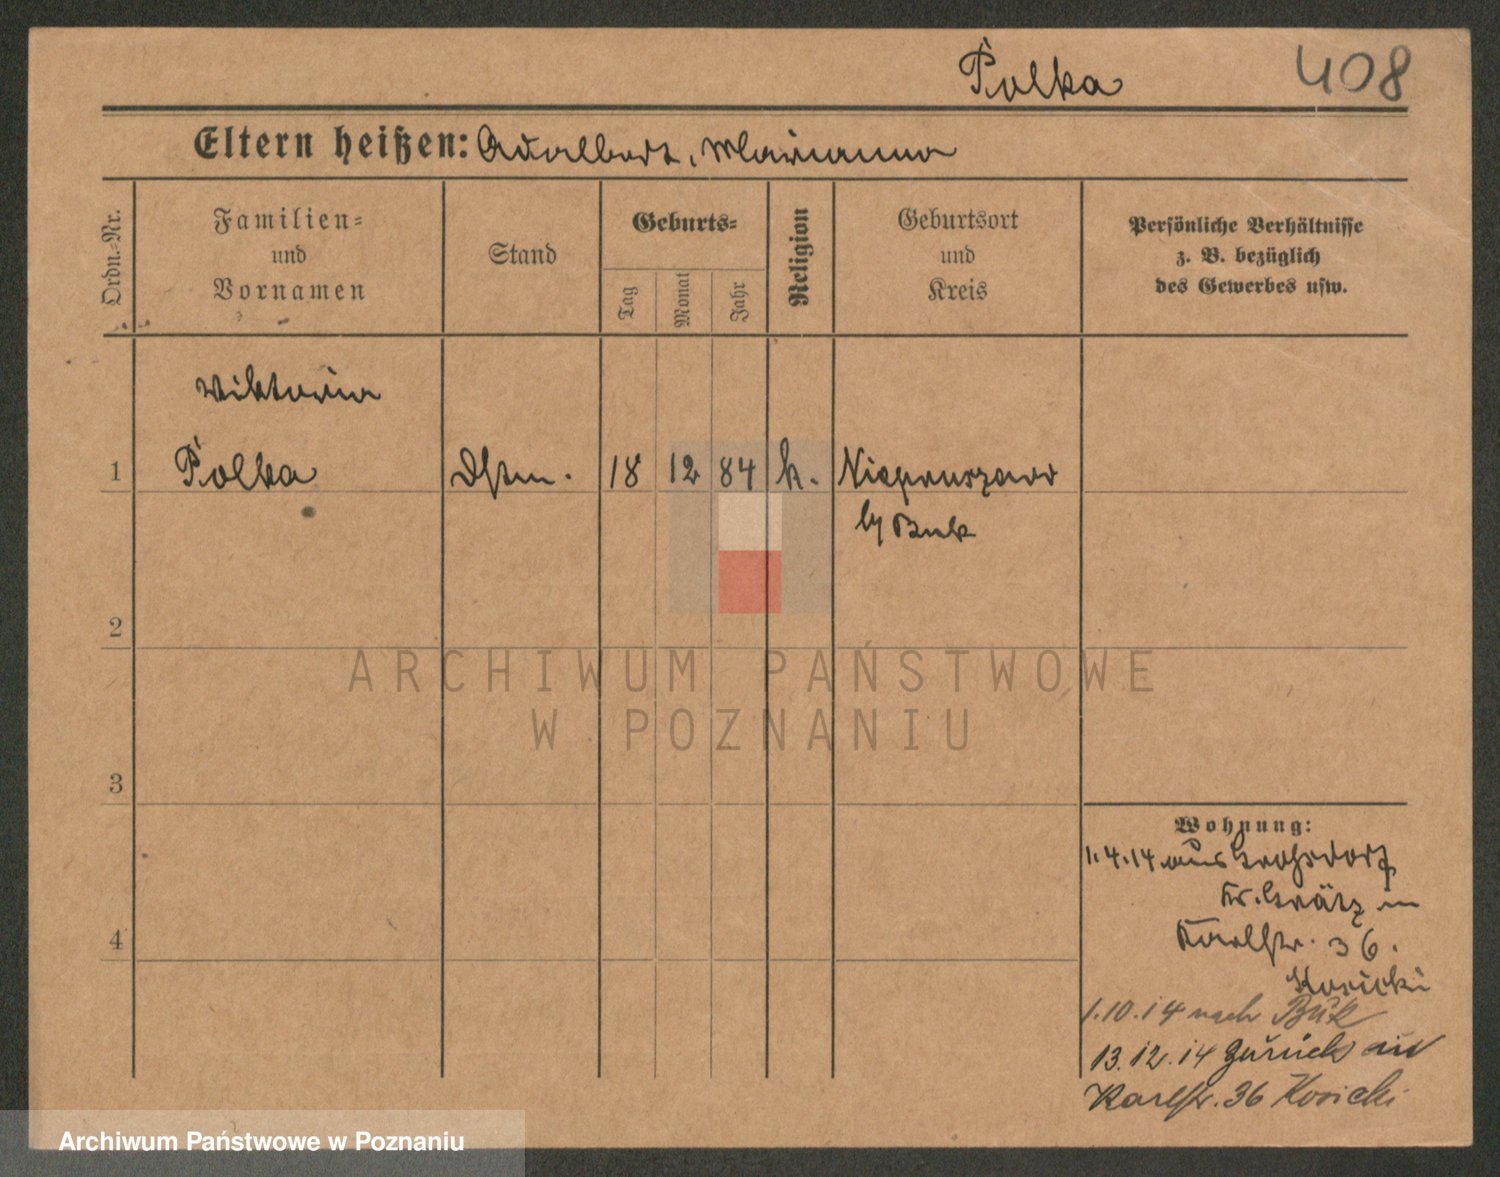 Polka 408
Eltern heißen: Adalbert, Marianna
Ordn.-Nr.
Familien-
und
Vornamen
Stand
Geburts-
Tag
Monat
Jahr
Religion
Geburtsort
und
Kreis
Persönliche Verhältnisse
z. B. bezüglich
des Gewerbes usw.
Viktoria
1 Polka Dstm. 18 12 84 k. Niepruszewo
by Buk
2
3
4
Wohnung:
1.4.14 aus
Kr. Grätz in
Karlstr. 36.
Kosicki
1.10.14 nach Buk
13.12.14 zurück
Karlstr. 36 Kosicki
ARCHIWUM PAŃSTWOWE
W POZNANIU
Archiwum Państwowe w Poznaniu